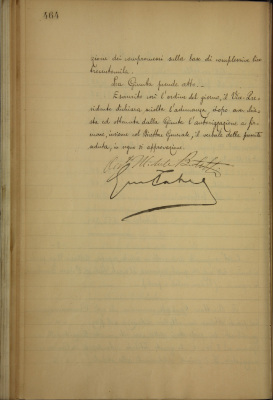 464
zione dei compromessi sulla base di complessive lire
trecentomila.
La Giunta prende atto.
Esaurito così l'ordine del giorno, il Vice-Pre-
sidente dichiara sciolta l'adunanza, dopo aver chie-
sto ed ottenuto dalla Giunta l'autorizzazione a fir-
mare, insieme al Direttore Generale, il verbale della presente
seduta, in segno di approvazione.